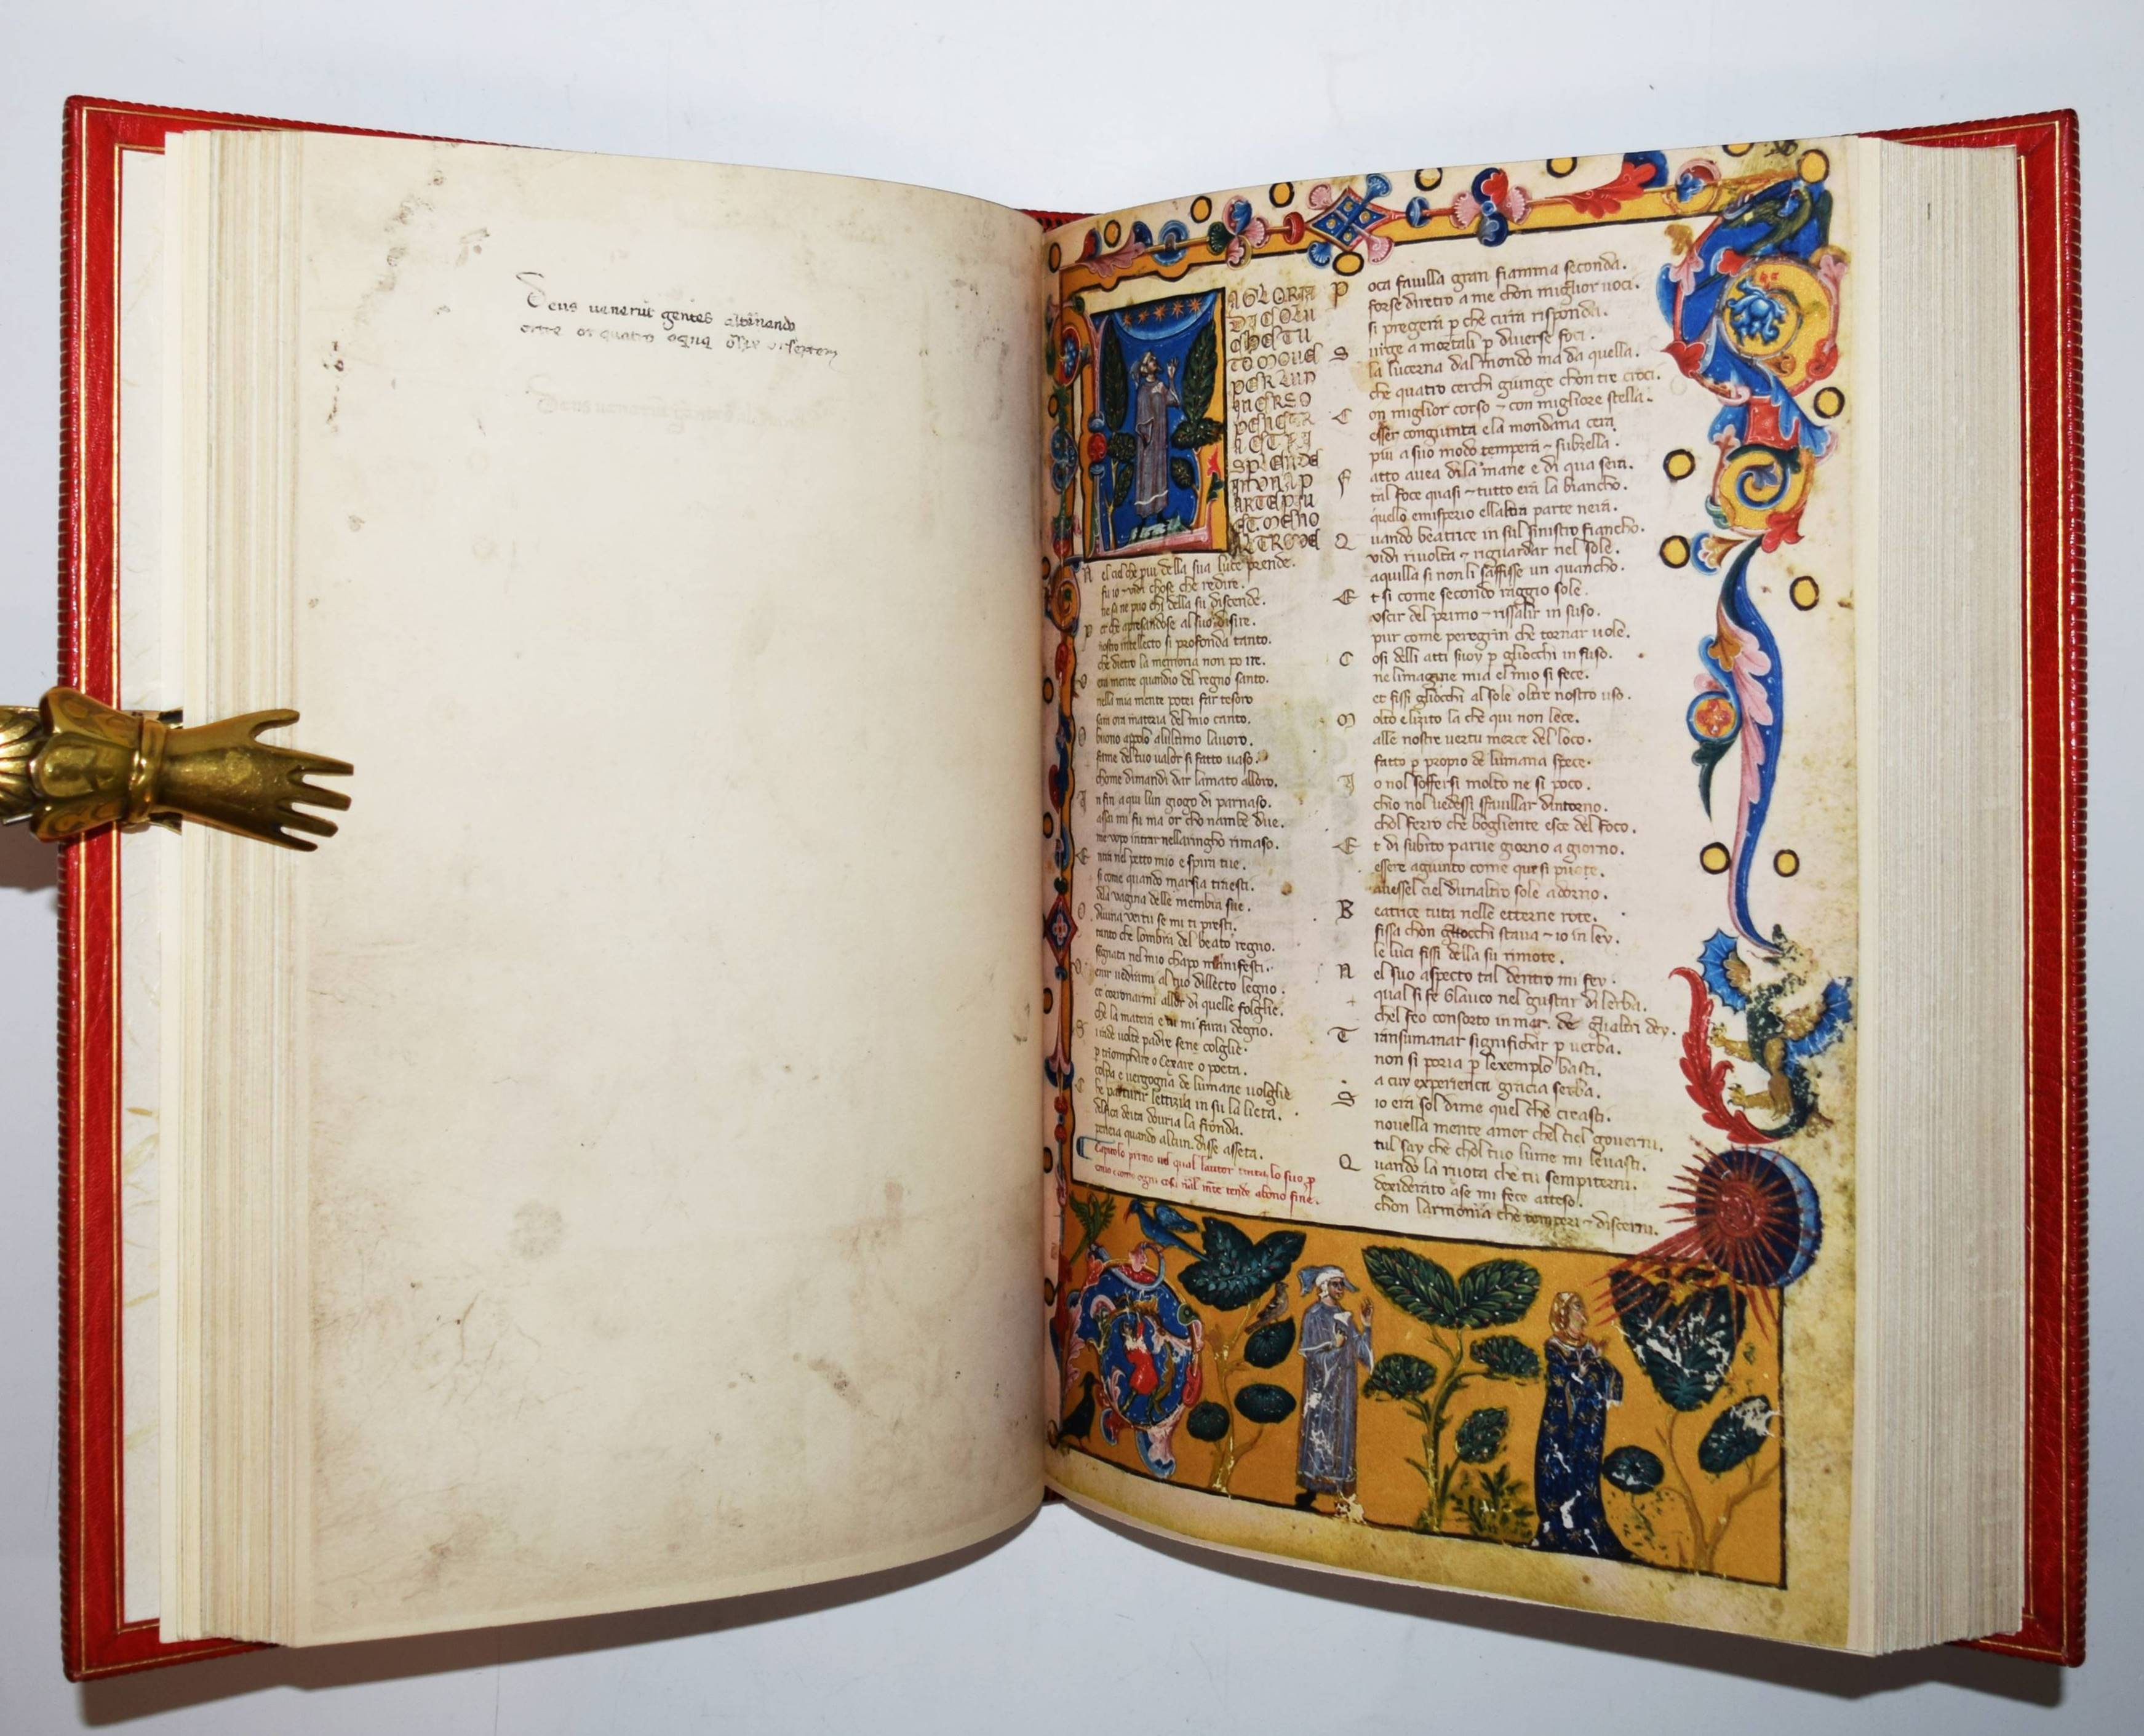 Deus uenerut gentes altinando
A GLORIA
DI COLU
CHE TU
TO MOUE
PER LUN
IUERSO
PENETR
A ET RI
SPLENDE
IN UNA P
ARTE PIU
ET MENO
ALTROUE
N el ciel che piu della sua luce prende.
fu io ⁊ vidi chose che redire.
ne sa ne puo chi della su discende.
P er che apresandose al suo disire.
nostro intellecto si profonda tanto.
che dietro la memoria non po ire.
V era mente quandio del regno santo.
nella mia mente potei far tesoro
sara ora materia del mio canto.
O buono appolo alultimo lauoro.
fame del tuo valor si fatto uaso.
chome dimandi dar lamato alloro.
I n fin a qui lun giogo di parnaso.
assai mi fu ma or chonambe due.
me vopo intrar nellaringho rimaso.
E ntra nel petto mio e spira tue.
si come quando marsia traesti.
dela vagina delle membra sue.
O diuina vertu se mi ti presti.
tanto che lombra del beato regno.
segnata nel mio chapo manifesti.
V enir vedrami al tuo dillecto legno.
et coronarmi allor di quelle folglie.
che la matera e tu mi farai degno.
S i rade volte padre sene colglie.
p triomphare o Cesare o poeta.
colpa e vergogna de lumane uolglie
C he parturir lettizia in su la lieta.
delfica deita douria la fronda.
peneia quando alcun disse asseta.
Capitolo primo nel qual lautor tratta lo suo p
P oca fauilla gran fiamma seconda.
forse diretro a me chon miglior uoci.
si pregera p che cirra risponda.
S urge a mortali p diuerse foci.
la lucerna dal mondo ma da quella.
che quatro cerchi giunge chon tre croci.
C on miglior corso ⁊ con migliore stella.
esser congiunta e la mondana cera
piu a suo modo tempera ⁊ subzella.
F atto auea di la mane e di qua sera.
tal foce quasi ⁊ tutto era la biancho.
quello emisperio ellaltra parte nera.
Q uando beatrice in sul sinistro fiancho.
vidi riuolta ⁊ riguardar nel sole.
aquilla si non li saffisse un quancho.
E t si come secondo raggio sole.
vscir del primo ⁊ rissalir in suso.
pur come peregrin che tornar uole.
C osi delli atti suoy p gliocchi in fuso.
ne limagine mia el mio si fece.
et fissi gliocchi al sole oltre nostro uso.
M olto e lizito la che qui non lece.
alle nostre vertu merce del loco.
fatto p propio de lumana spece.
I o nol soffersi molto ne si poco.
chio nol vedessi sfauillar dintorno.
chol ferro che bogliente esce del foco.
E t di subito parue giorno a giorno.
essere agiunto come quei si puote.
auessel ciel dunaltro sole adorno.
B eatrice tuta nelle etterne rote.
fissa chon gliocchi staua ⁊ io in ley.
le luci fissi della su rimote.
N el suo aspecto tal dentro mi fey.
qual si fe Glauco nel gustar di lerba.
chel feo consorto in mar. de glialtri dey.
T ransumanar significhar p uerba.
non si poria p lexemplo basti.
a cuy experienca gracia serba.
S io era sol dime quel che creasti.
nouella mente amor chel ciel gouerni.
tul say che chol tuo lume mi leuasti.
Q uando la ruota che tu sempiterni.
dexiderato ase mi fece atteso.
chon larmonia che temperi ⁊ discerni.